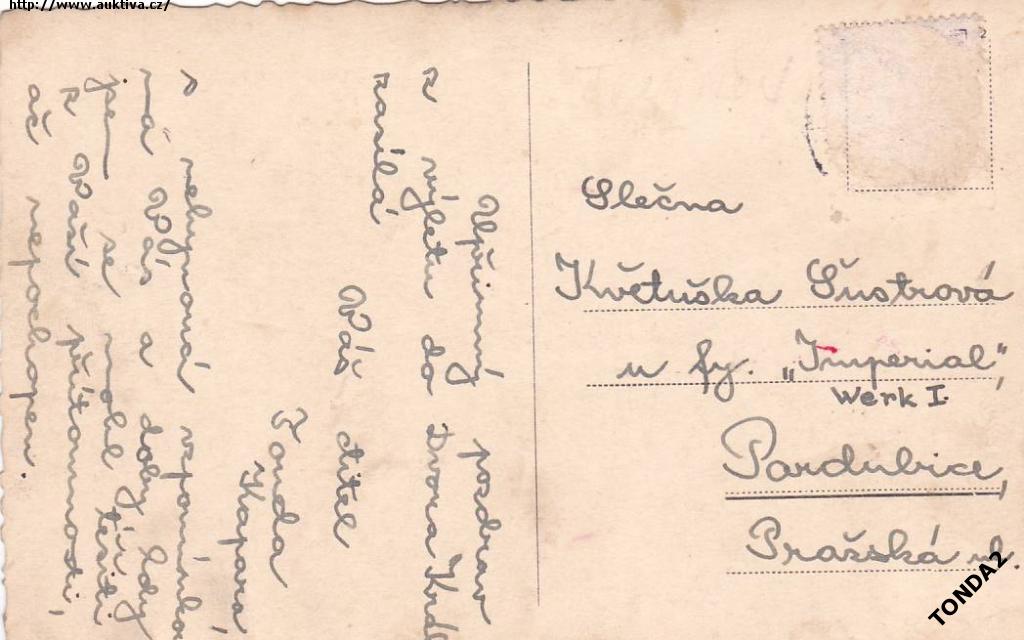 http://www.auktiva.cz/
Upřímný pozdrav
z výletu do Dvora Král
zasílá
Váš ctitel
Tonda
Kapara
nehynoucí vzpomínka
na Vás a doby, kdy
jsem se mohl těšiti
z Vaší přítomnosti,
ač nepochopen.
Slečna
Květuška Šustrová
u fy. „Imperial",
Werk I.
Pardubice,
Pražská ul.
TONDA2